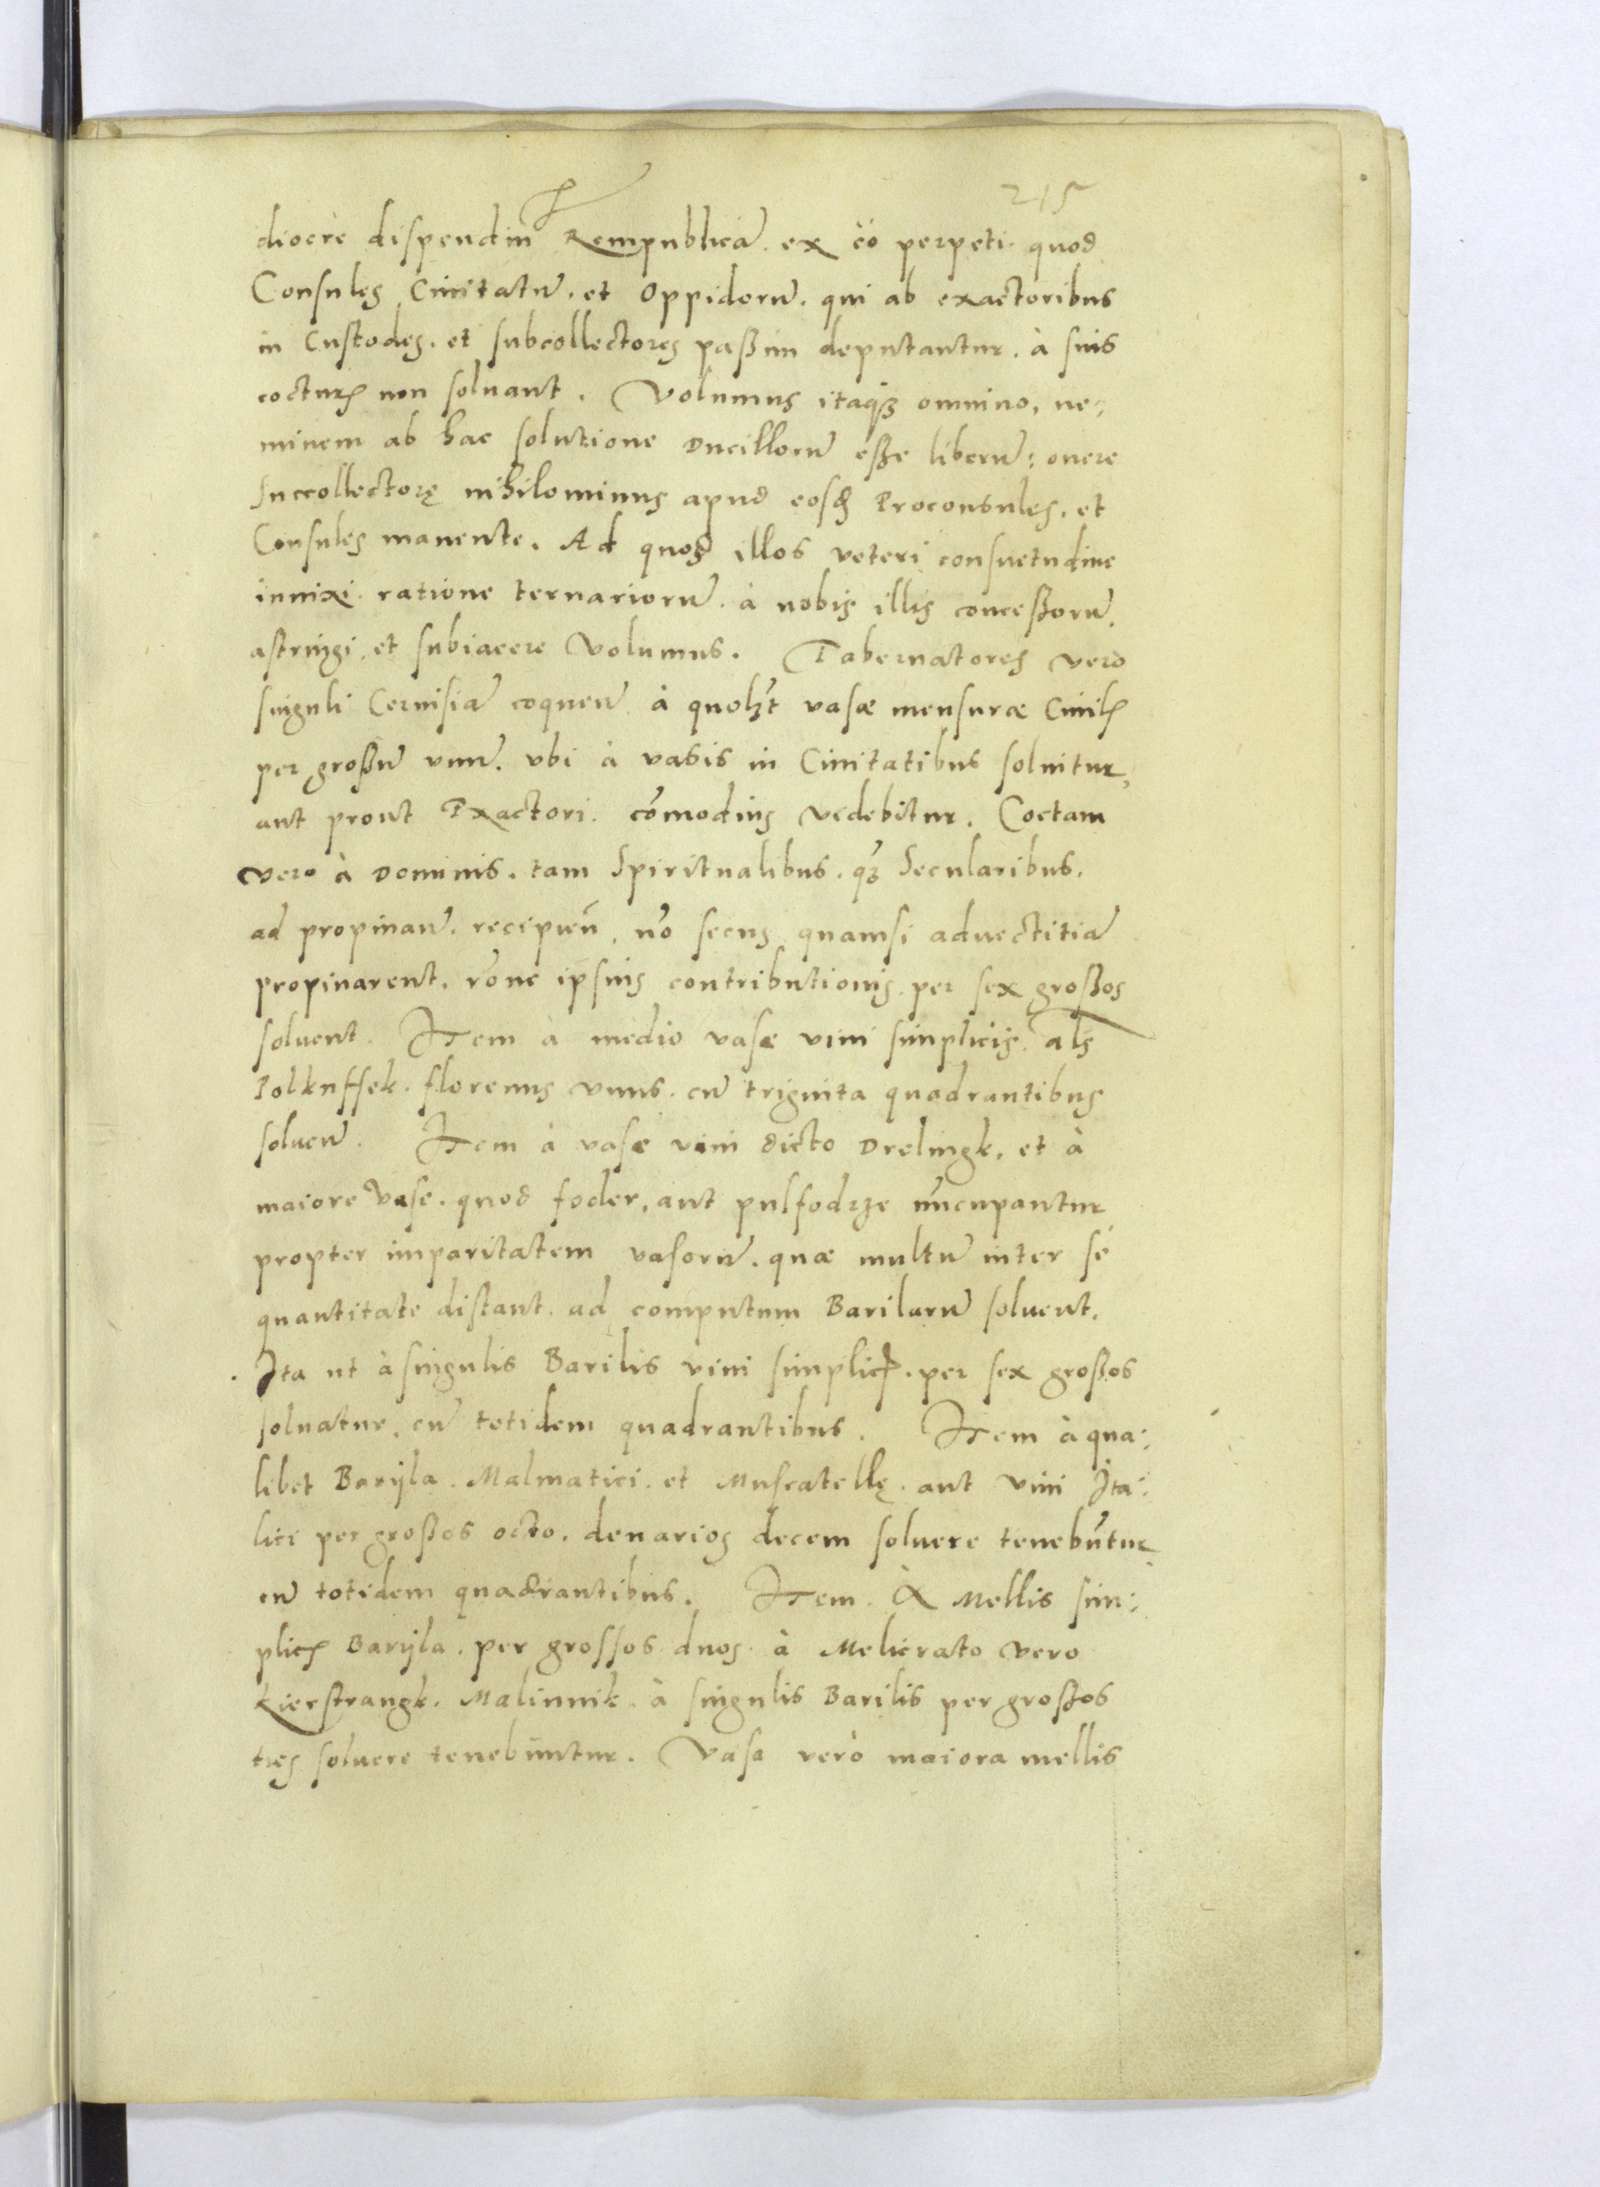 215
diocrè dispendiũ Rempublicã. ex eó perpeti. quod
Consules Ciuitatũ. et Oppidorũ. qui ab exactoribus
in Custodes. et subcollectores paßim deputantur. à suis
coctur̃ non soluant. Volumus itaqȝ omnino, ne:
minem ab hac solutione Ducillorũ eße liberũ: onere
Succollectorę nihilominus apud eosd̃ Proconsules, et
Consules manente. Ad quod illos veteri consuetudine
innixi ratione ternariorũ. à nobis illis conceßorũ.
astringi. et subiacere Volumus. Tabernatores vero
singuli Ceruisiã coqueñ à quolȝt vasæ mensuræ Ciuil̃
per großũ vnũ. vbi à vasis in Ciuitatibus soluitur,
aut prout Exactori. cõmodius vedebitur. Coctam
vero à Dominis. tam Spiritualibus. qȝ Secularibus.
ad propinañ. recipieñ, nõ secus quamsi aduectitiã
propinarent. rõne ipsius contributionis. per sex großos
soluent. Item à medio vase vini simplicis. als
Polkuffek. florenus vnus. cũ triginta quadrantibus
solueñ. Item à vase vini dicto Drelingk, et à
maiore Vase. quod foder, aut pulfodrze nũcupantur
propter imparitatem vasorũ. quæ multũ inter sé
quantitate distant. ad computum Barilarũ soluent.
Ita ut à singulis Barilis vini simplic̃. per sex großos
soluatur. cũ totidem quadrantibus. Item à qua:
libet Baryla. Malmatici. et Muscatellę. aut vini Ita:
lici per großos octo. denarios decem soluere tenebũtur
cũ totidem quadrantibus. Item. A Mellis sim:
plic̃ Baryla. per grossos duos. à Melicrato vero
Kierstrangk. Malinnik. à singulis Barilis per großos
tres soluere tenebuntur. Vasa verò maiora mellis